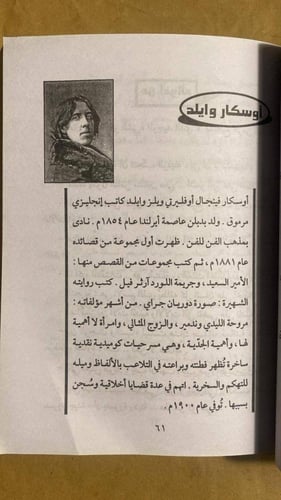 أوسكار وايلد
أوسكار فينجال أوفليرتي ويلز وايلد كاتب إنجليزي
مرموق . ولد بدبلن عاصمة أيرلندا عام ١٨٥٤م . نادى
بمذهب الفن للفن . ظهرت أول مجموعة من قصائده
عام ١٨٨١م ، ثم كتب مجموعات من القصص منها :
الأمير السعيد، وجريمة اللورد آرثر فيل . كتب روايته
الشهيرة : صورة دوريان جراي . من أشهر مؤلفاته :
مروحة الليدي وندمير، والزوج المثالي ، وامرأة لا أهمية
لها ، وأهمية الجدّية ، وهي مسرحيات كوميدية نقدية
ساخرة تُظهر فطنته وبراعته في التلاعب بالألفاظ وميله
للتهكم والسخرية . اتهم في عدة قضايا أخلاقية وسُجن
بسببها . تُوفي عام ١٩٠٠م .
٦١